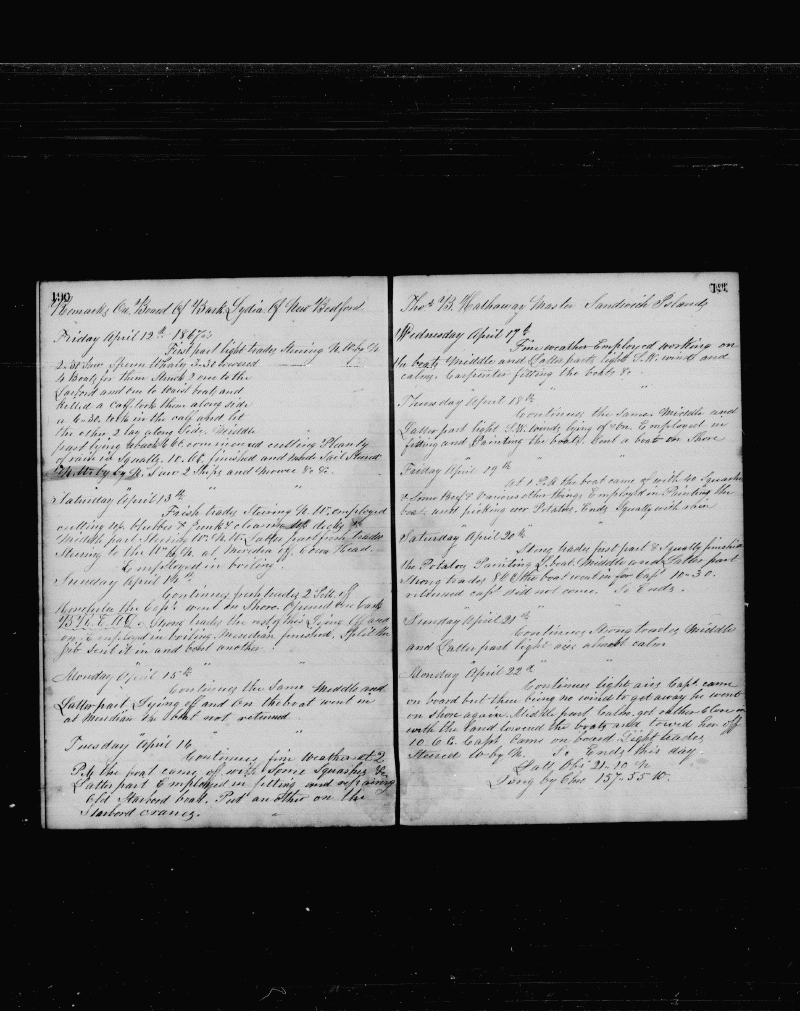 190
Remarks On Board Of Bark Lydia Of New Bedford
Friday April 12th 1867
First part light trades Stering N.W. by W.
2-30 Saw Sperm Whales 3-30 lowered
4 Boats for them Struck 2 one to the
Larbord and one to Waist boat and
killed a calf took them along side
a 6-30. took in the calf and let
the other 2 lay along Side. Middle
part lying aback 6 commenced cutting Plenty
of rain in Squalls. 10. finished and made Sail Steard
by W. Saw 2 Ships and &c &c.
Saturday April 13th
Fresh trades Stering N.W. employed
cutting up blubber & junk & clearing up decks &c
Middle part Stering W.N.W. Latter part firm trades
Stering to the W by N. at Meridian off Head.
Employed in boiling.
Sunday April 14th
Continues fresh trades 2 P.M. off
Honolulu the Capt went on Shore. Opened one Cask
Strong trades the rest of this Lying off and
on. Employed in boiling. Meridian finished. Split the
jib sent it in and bent another
Monday April 15th
Continues the Same Middle and
Latter part. Lying off and On the boat went in
at Meridian boat not returned
Tuesday April 16
Continues fine weather at 2
P.M the boat came off with Some Squashes &c
Latter part Employed in fitting and repairing
Old Starbord boat. Put another on the
Starbord cranes.
191
Thos B. Hathaway Master Sandwich Islands
Wednesday April 17th
Fine weather Employed working on
the boats Middle and Latter parts light S.W. winds and
calms. Carpenter fitting the boats &c
Thursday April 18th
Continues the Same. Middle and
Latter part light S.W. winds lying of & on. Employed in
fitting and Painting the boats. Sent a boat on Shore
Friday April 19th
At 1 P.M the boat came of with 40 Squashes
& Some Beef & Various other things Employed in Painting the
boat and picking over Potatoes. Ends Squally with rain
Saturday April 20th
Strong trades first part & Squally finished
the Potatoes Painting L. boat. Middle and Latter part
Strong trades the boat went in for Capt 10-30.
returned capt did not come. So Ends.
Sunday April 21st
Continues Strong trades Middle
and Latter part light airs almost calm
Monday April 22d
Continues light airs Capt came
on board but there being no wind to get away he went
on Shore again. Middle part Calm. got rather Close in
with the land lowered the boats and towed her off
10 Capt Came on board Light trades
Steered W by N. So Ends this day
Latt Obs 21-10 N
Long by Chr 157-55 W.